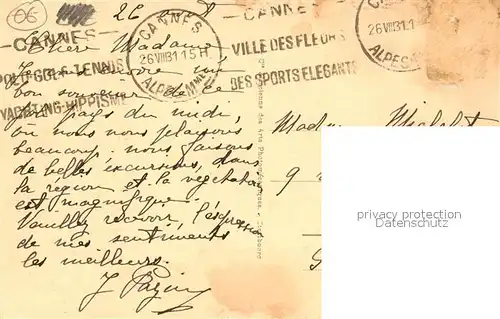 06
26 août
CANNES
26 VIII 31 15 H
ALPES MMES
CANNES
POLO-GOLF-TENNIS
YACHTING-HIPPISME
CANNES
VILLE DES FLEURS
DES SPORTS ELEGANTS
26 VIII 31 1
ALPES
Chère Madame
bon souvenir de ce
pays du midi,
où nous nous plaisons
beaucoup. nous faisons
de belles excursions, dans
la région et la végétation
est magnifique.
Veuillez recevoir, l'expression
de mes sentiments
les meilleurs.
Madame Michelet
9
privacy protection
Datenschutz